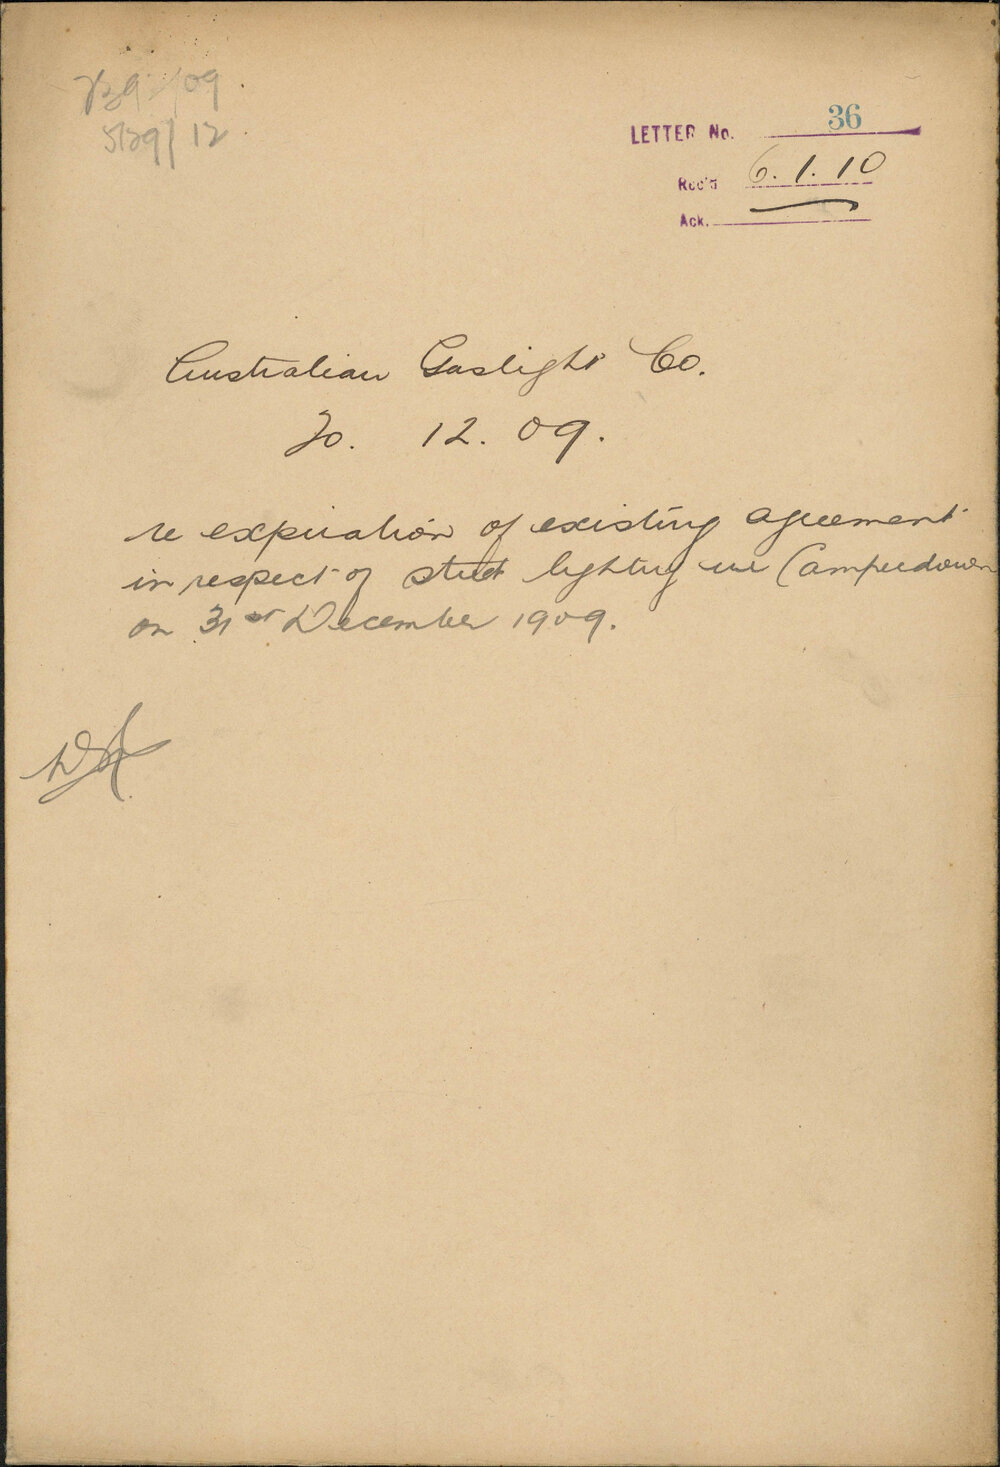 739/09
5129/12
LETTER No. 36
Rec'd 6.1.10
Ack.
Australian Gaslight Co.
30. 12. 09.
re expiration of existing agreement
in respect of street lighting in Camperdown
on 31st December 1909.